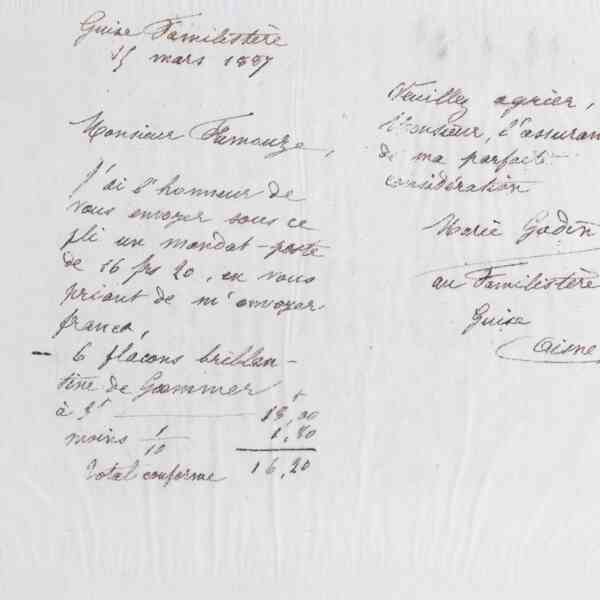 Guise Familistère
15 mars 1887
Monsieur Fumouze,
J'ai l'honneur de
vous envoyer sous ce
pli un mandat-poste
de 16 frs 20, en vous
priant de m'envoyer
franco,
– 6 flacons brillan-
tine de
à 3f 18,00
moins 1/10 1,80
Total conforme 16,20
Veuillez agréer,
Monsieur, l'assuran
de ma parfaite
considération
Marie Godin
au Familistère
Guise
Aisne